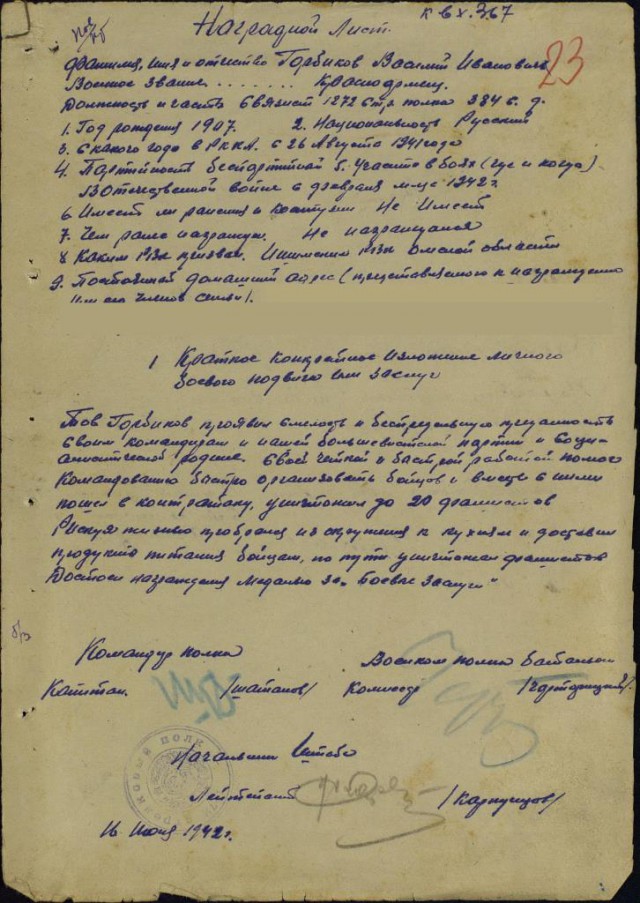 к в х. 367
Наградной Лист.
23
Фамилия, имя и отчество Горбиков Василий Иванович
Военное звание . . . . . . . Красноармеец.
Должность и часть Связист 1272 стр. полка 384 с. д.
1. Год рождения 1907. 2. Национальность Русский
3. С какого года в РККА. с 26 Августа 1941 года
4. Партийность беспартийный 5. Участие в боях (где и когда)
В Отечественной войне с февраля м-ца 1942 г.
6. Имеет ли ранения и контузии Не Имеет
7. Чем ранее награжден. Не награждался
8. Каким РВК призван. Ишимским РВК Омской области
9. Постоянный домашний адрес (представляемого к награждению
или его членов семьи).
1 Краткое конкретное изложение личного
боевого подвига или заслуг
Тов Горбиков проявил смелость и беспредельную преданность
своим командирам и нашей большевистской партии и социа-
листической родине. Своей четкой и быстрой работой помог
командованию быстро организовать бойцов и вместе с ними
пошел в контратаку, уничтожил до 20 фашистов
Рискуя жизнью пробрался из окружения к кухням и доставил
продукты питания бойцам, по пути уничтожал фашистов
Достоин награждения Медалью за „Боевые заслуги"
Командир полка Военком полка батальон
Капитан /Шатанов/ Комиссар
Начальник Штаба
Лейтенант /Карпушцов/
16 Июня 1942 г.